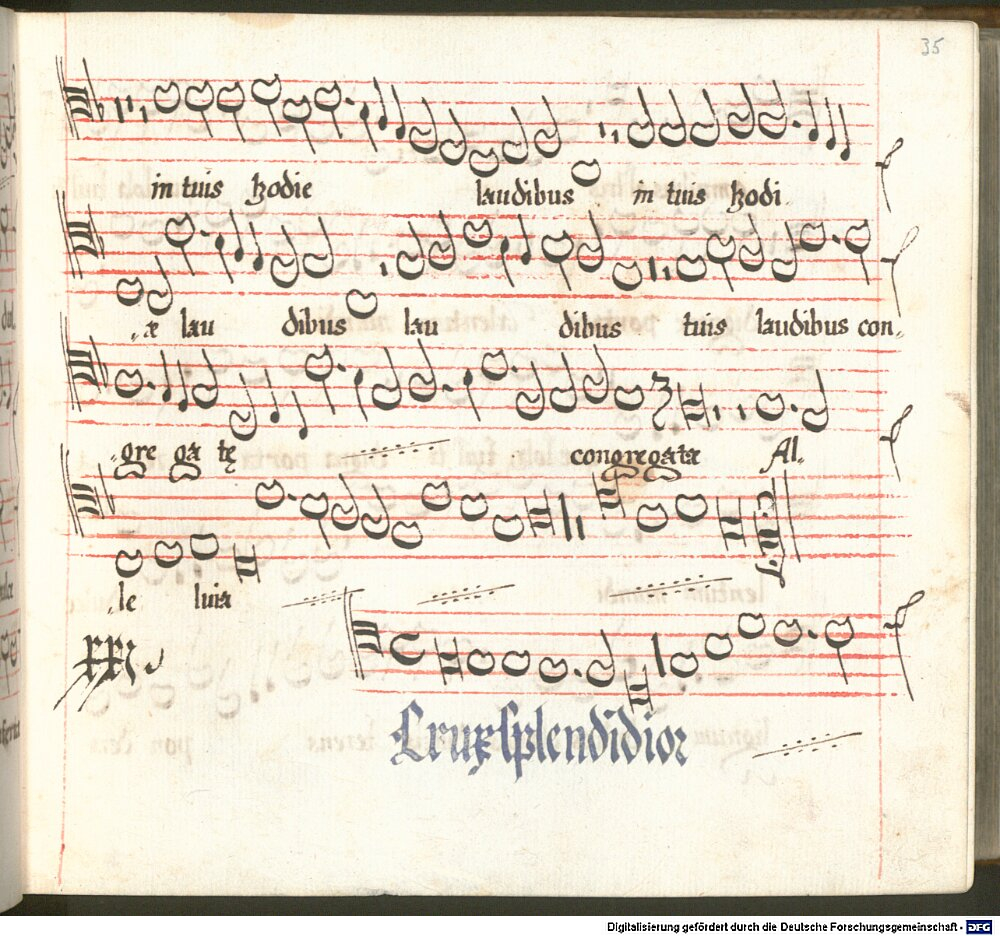 35
in tuis hodie laudibus in tuis hodi
æ lau dibus lau dibus tuis laudibus con
gre ga tę congregata Al
le luia
XXI
Crux splendidior
Digitalisierung gefördert durch die Deutsche Forschungsgemeinschaft - DFG